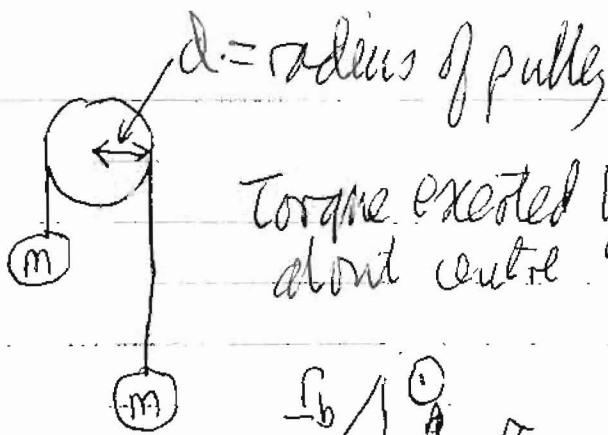 d = radius of pulley
Torque exerted
about centre
m
m